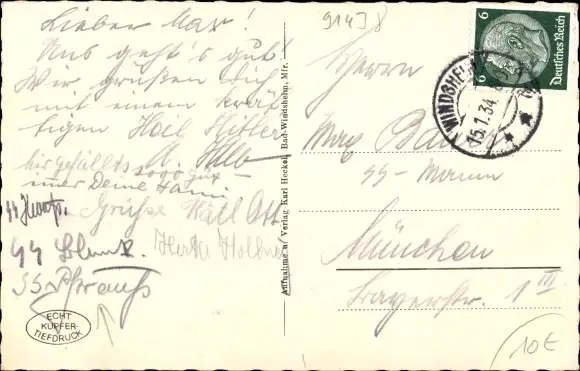 Lieber Max!
Uns geht's gut!
Wir grüßen Dich
mit einem kräf
tigen Heil Hitler
hier gefällts 1000 gut
immer Deine Hanni
Grüße Kätl Ott
SS Blank. Herta
SS Strauß
ECHT
KUPFER-
TIEFDRUCK
Aufnahme u. Verlag Karl Heckel, Bad-Windsheim, Mfr.
91438
6 6
Deutsches Reich
WINDSHEIM
15.1.34
Herrn
Max
SS-Mann
München
1 III
10€